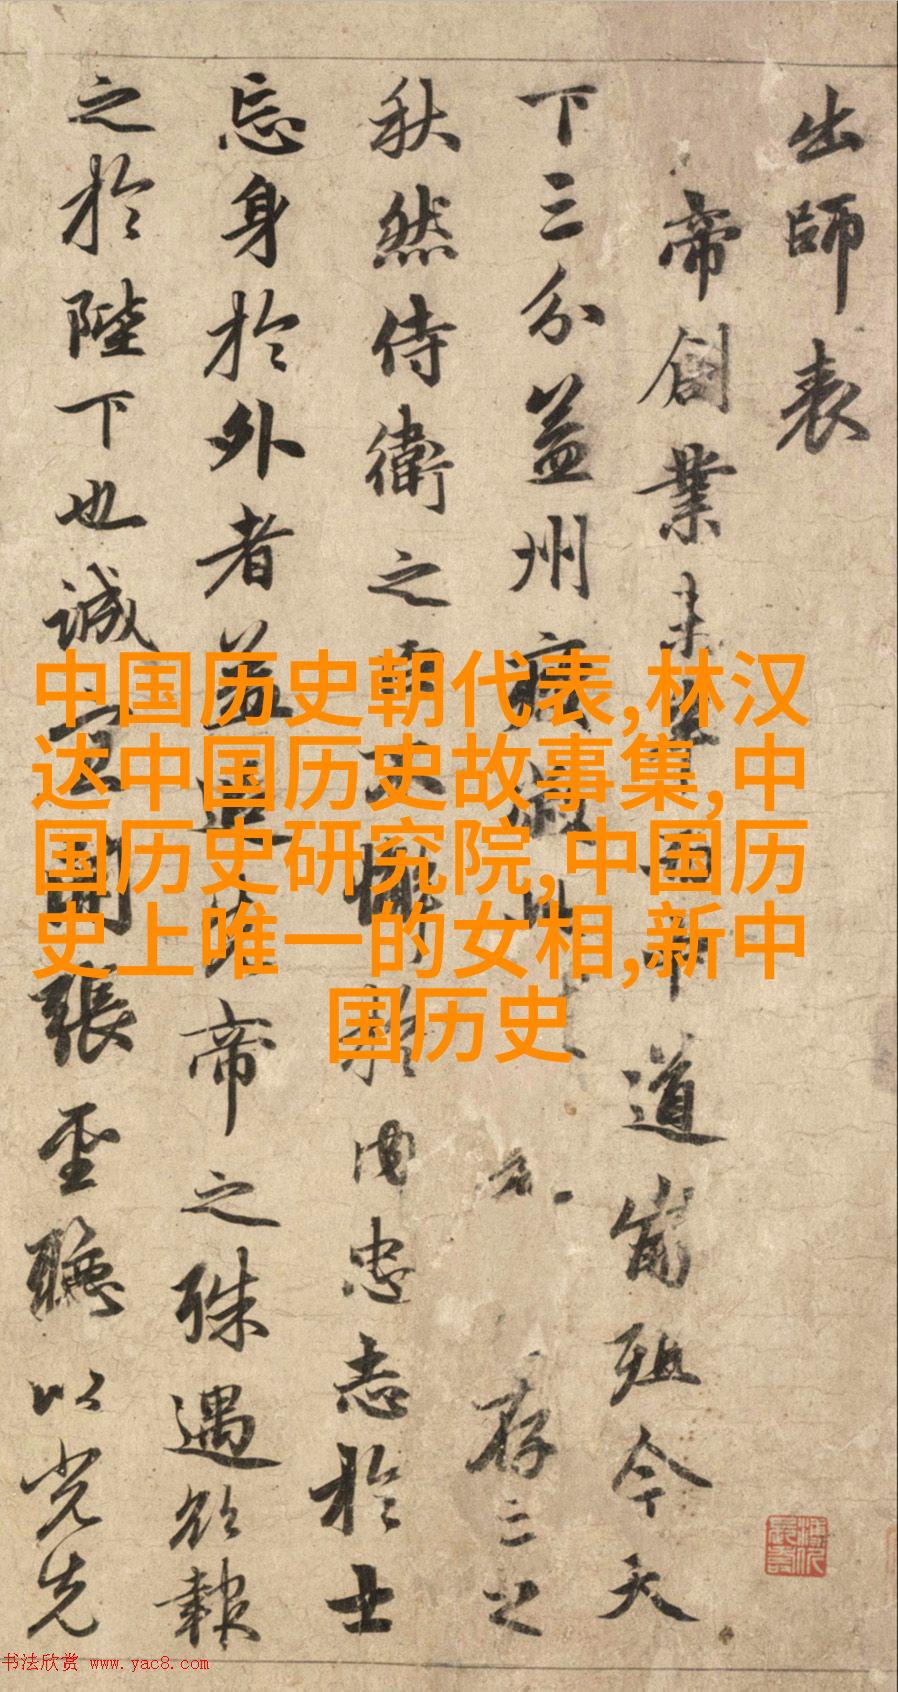 出師表
帝創業未而中道崩殂今天
下三分益州疲此存之
秋然侍衛之臣不懈於内忠志於士
忘身於外者蓋追先帝之殊遇欲報
之於陛下也誠宜開張聖聽以光先
中国历史朝代表,林汉
达中国历史故事集,中
国历史研究院,中国历
史上唯一的女相,新中
国历史
书法欣赏 www.yac8.com